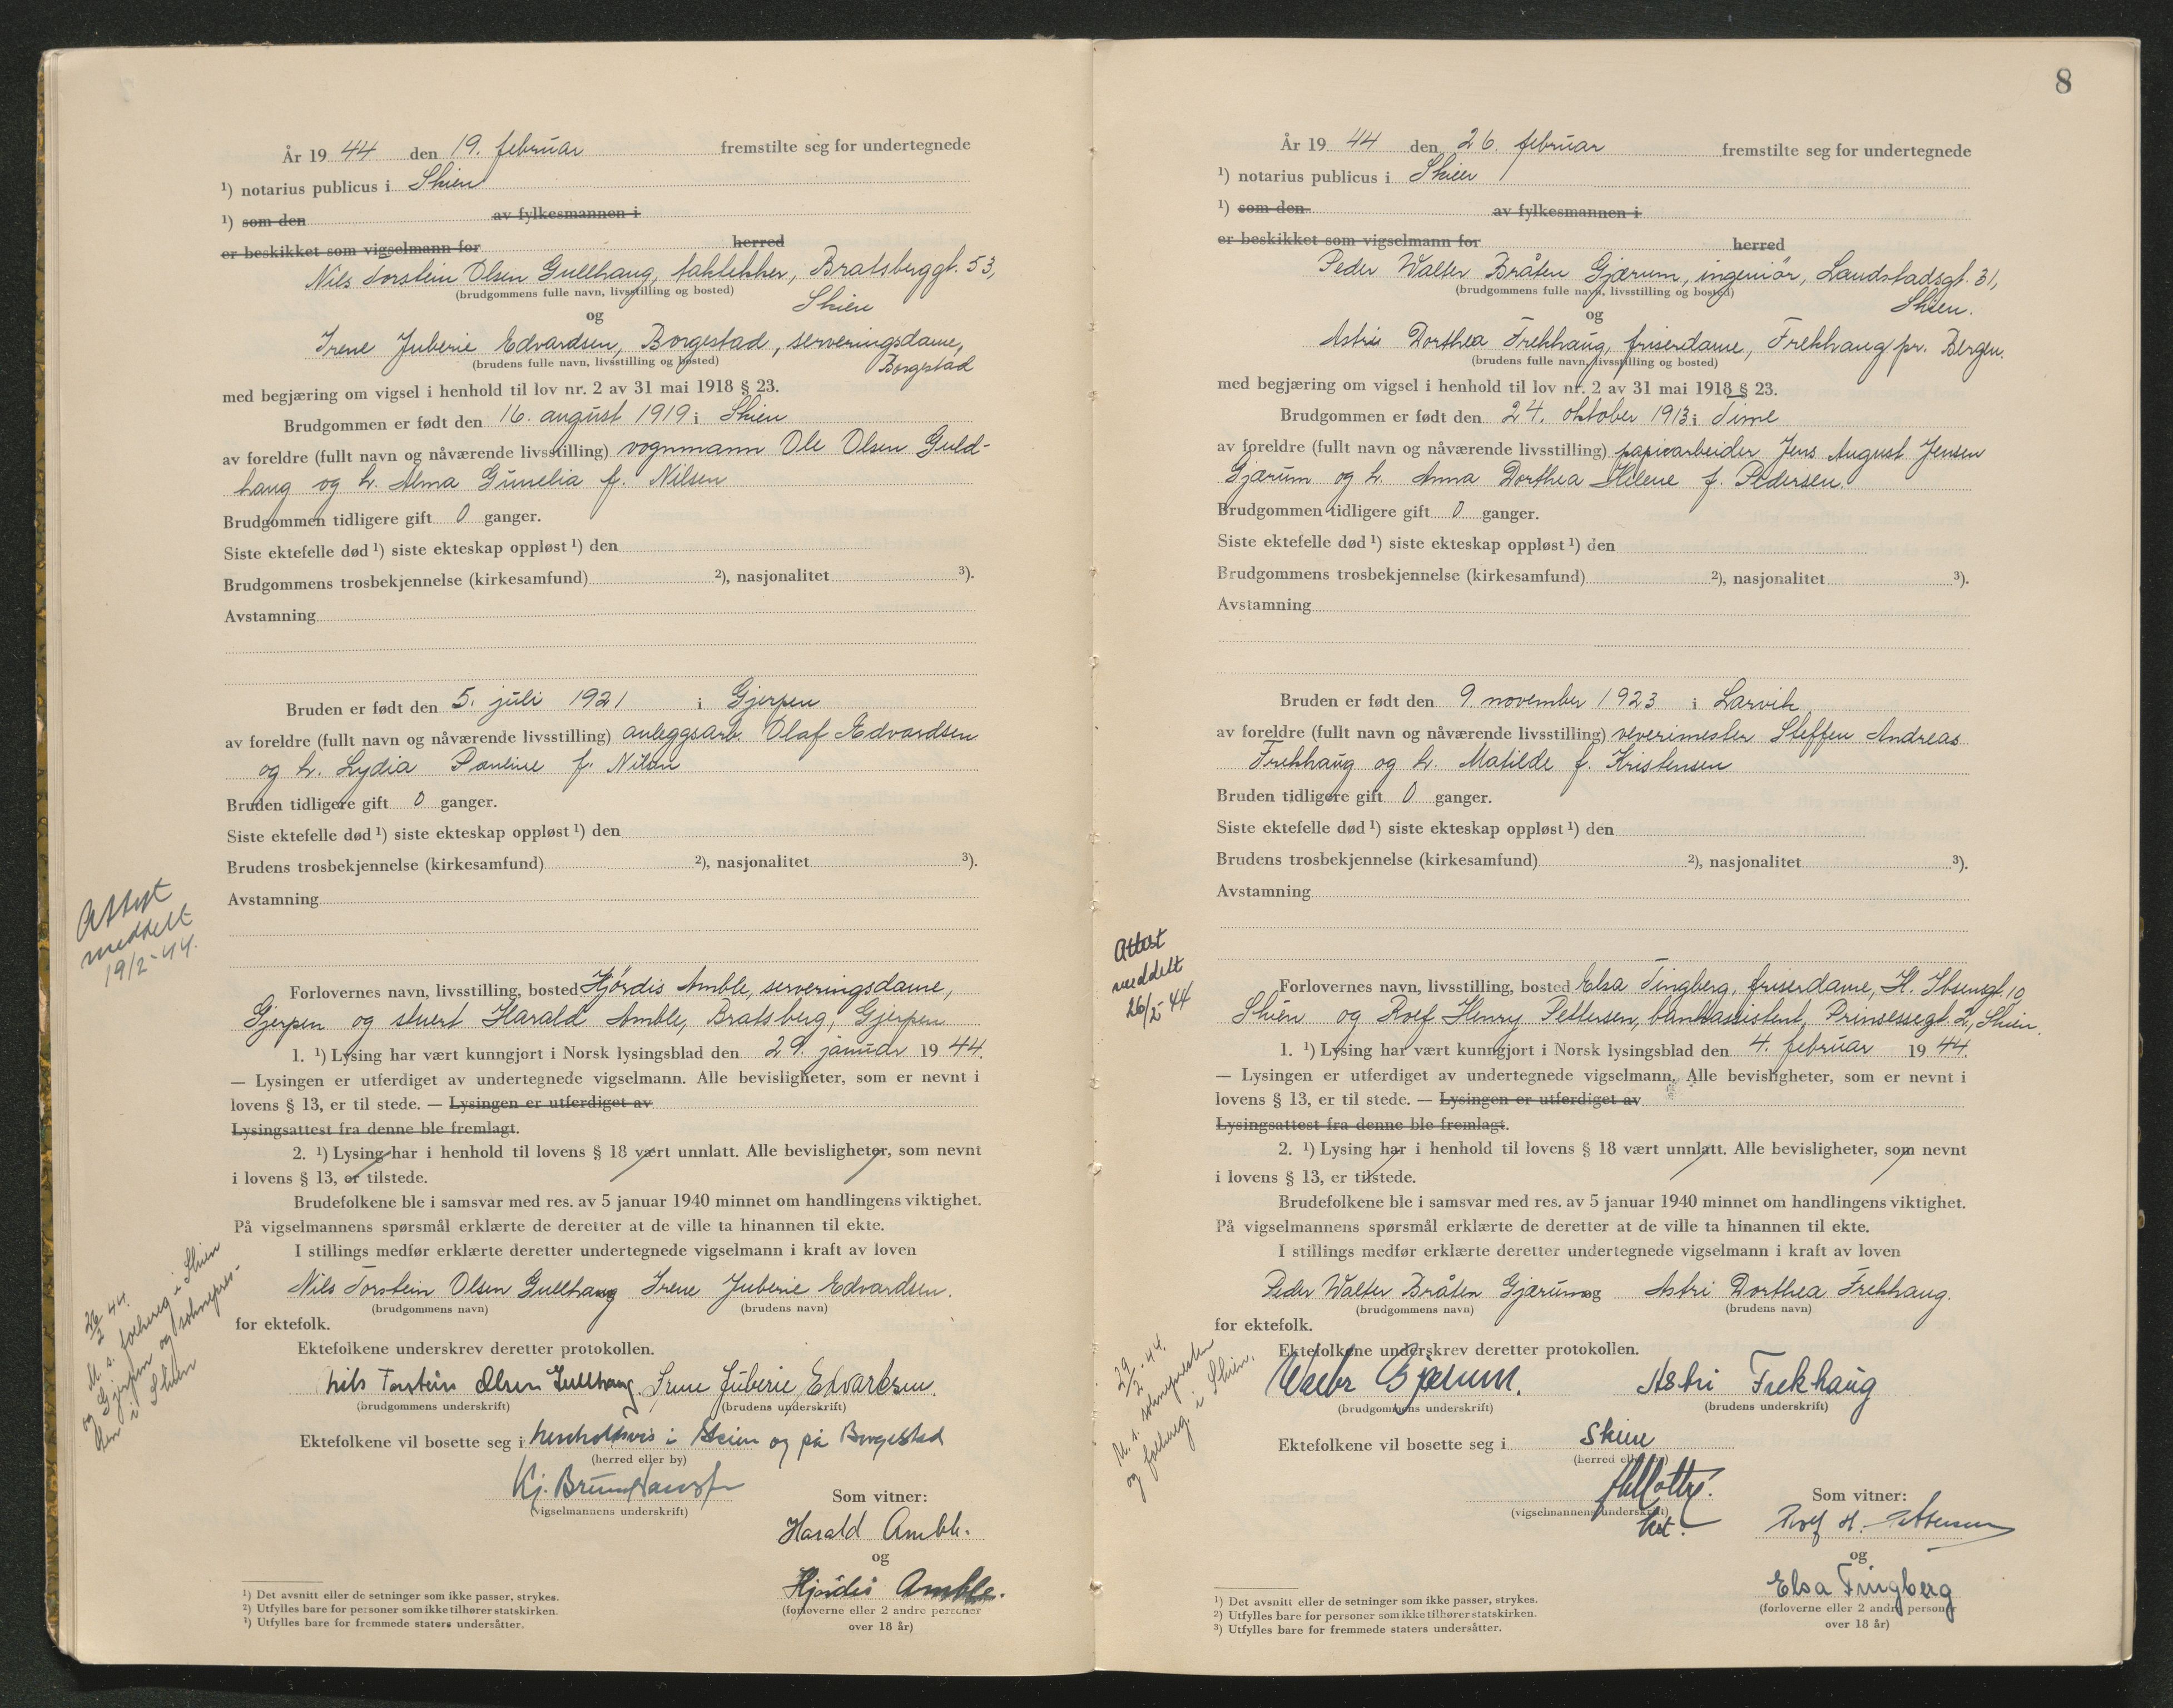 År 19 44 den 19. februar fremstilte seg for undertegnede
¹) notarius publicus i Skien
¹) som den av fylkesmannen i
er beskikket som vigselmann for herred
Nils Torstein Olsen Gullhaug, taktekker, Bratsberggt. 53,
(brudgommens fulle navn, livsstilling og bosted)
Skien
og
Irene Juberie Edvardsen, Borgestad, serveringsdame,
(brudens fulle navn, livsstilling og bosted)
Borgestad
med begjæring om vigsel i henhold til lov nr. 2 av 31 mai 1918 § 23.
Brudgommen er født den 16. august 1919 i Skien
av foreldre (fullt navn og nåværende livsstilling) vognmann Ole Olsen Guld-
haug og h. Alma Gunelia f. Nilsen
Brudgommen tidligere gift 0 ganger.
Siste ektefelle død ¹) siste ekteskap oppløst ¹) den
Brudgommens trosbekjennelse (kirkesamfund) ²), nasjonalitet ³).
Avstamning
Bruden er født den 5. juli 1921 i Gjerpen
av foreldre (fullt navn og nåværende livsstilling) anleggsarb. Olaf Edvardsen
og h. Lydia Pauline f. Nilsen
Bruden tidligere gift 0 ganger.
Siste ektefelle død ¹) siste ekteskap oppløst ¹) den
Brudens trosbekjennelse (kirkesamfund) ²), nasjonalitet ³).
Avstamning
Attest
meddelt
19/2-44.
Forlovernes navn, livsstilling, bosted Hjördis Amble, serveringsdame,
Gjerpen og stuert Harald Amble, Bratsberg, Gjerpen
1. ¹) Lysing har vært kunngjort i Norsk lysingsblad den 29. januar 19 44.
— Lysingen er utferdiget av undertegnede vigselmann. Alle bevisligheter, som er nevnt i
lovens § 13, er til stede. — Lysingen er utferdiget av
Lysingsattest fra denne ble fremlagt.
2. ¹) Lysing har i henhold til lovens § 18 vært unnlatt. Alle bevisligheter, som nevnt
i lovens § 13, er tilstede.
Brudefolkene ble i samsvar med res. av 5 januar 1940 minnet om handlingens viktighet.
På vigselmannens spørsmål erklærte de deretter at de ville ta hinannen til ekte.
I stillings medfør erklærte deretter undertegnede vigselmann i kraft av loven
Nils Torstein Olsen Gullhaug og Irene Juberie Edvardsen.
(brudgommens navn) (brudens navn)
for ektefolk.
26/2 44.
M. s. folkereg. i Skien
og Gjerpen og sokneprest-
en i Skien
Ektefolkene underskrev deretter protokollen.
Nils Torstein Olsen Gullhaug. Irene Juberie Edvardsen.
(brudgommens underskrift) (brudens underskrift)
Ektefolkene vil bosette seg i henholdsvis i Skien og på Borgestad
(herred eller by)
(vigselmannens underskrift)
Som vitner:
Harald Amble.
og
Hjördis Amble.
(forloverne eller 2 andre personer
over 18 år)
¹) Det avsnitt eller de setninger som ikke passer, strykes.
²) Utfylles bare for personer som ikke tilhører statskirken.
³) Utfylles bare for fremmede staters undersåtter.
8
År 19 44 den 26. februar fremstilte seg for undertegnede
¹) notarius publicus i Skien
¹) som den av fylkesmannen i
er beskikket som vigselmann for herred
Peder Walter Bråten Gjærum, ingeniør, Landstadsgt. 31,
(brudgommens fulle navn, livsstilling og bosted)
Skien.
og
Astri Dorthea Frekhaug, friserdame, Frekhaug pr. Bergen.
(brudens fulle navn, livsstilling og bosted)
med begjæring om vigsel i henhold til lov nr. 2 av 31 mai 1918 § 23.
Brudgommen er født den 24. oktober 1913 i Time
av foreldre (fullt navn og nåværende livsstilling) papirarbeider Jens August Jensen
Gjærum og h. Anna Dorthea Helene f. Pedersen.
Brudgommen tidligere gift 0 ganger.
Siste ektefelle død ¹) siste ekteskap oppløst ¹) den
Brudgommens trosbekjennelse (kirkesamfund) ²), nasjonalitet ³).
Avstamning
Bruden er født den 9. november 1923 i Larvik
av foreldre (fullt navn og nåværende livsstilling) vevermester Steffen Andreas
Frekhaug og h. Matilde f. Kristensen
Bruden tidligere gift 0 ganger.
Siste ektefelle død ¹) siste ekteskap oppløst ¹) den
Brudens trosbekjennelse (kirkesamfund) ²), nasjonalitet ³).
Avstamning
Attest
meddelt
26/2-44
Forlovernes navn, livsstilling, bosted Elsa Tingberg, friserdame, H. Ibsensgt. 10
Skien og Rolf Henry Pettersen, bankassistent, Prinsessegt. 2, Skien.
1. ¹) Lysing har vært kunngjort i Norsk lysingsblad den 4. februar 19 44.
— Lysingen er utferdiget av undertegnede vigselmann. Alle bevisligheter, som er nevnt i
lovens § 13, er til stede. — Lysingen er utferdiget av
Lysingsattest fra denne ble fremlagt.
2. ¹) Lysing har i henhold til lovens § 18 vært unnlatt. Alle bevisligheter, som nevnt
i lovens § 13, er tilstede.
Brudefolkene ble i samsvar med res. av 5 januar 1940 minnet om handlingens viktighet.
På vigselmannens spørsmål erklærte de deretter at de ville ta hinannen til ekte.
I stillings medfør erklærte deretter undertegnede vigselmann i kraft av loven
Peder Walter Bråten Gjærum og Astri Dorthea Frekhaug.
(brudgommens navn) (brudens navn)
for ektefolk.
29/2-44.
M. s. soknepresten
og folkereg. i Skien.
Ektefolkene underskrev deretter protokollen.
Walter Gjærum. Astri Frekhaug
(brudgommens underskrift) (brudens underskrift)
Ektefolkene vil bosette seg i Skien
(herred eller by)
(vigselmannens underskrift)
Som vitner:
Rolf H. Pettersen
og
Elsa Tingberg
(forloverne eller 2 andre personer
over 18 år)
¹) Det avsnitt eller de setninger som ikke passer, strykes.
²) Utfylles bare for personer som ikke tilhører statskirken.
³) Utfylles bare for fremmede staters undersåtter.